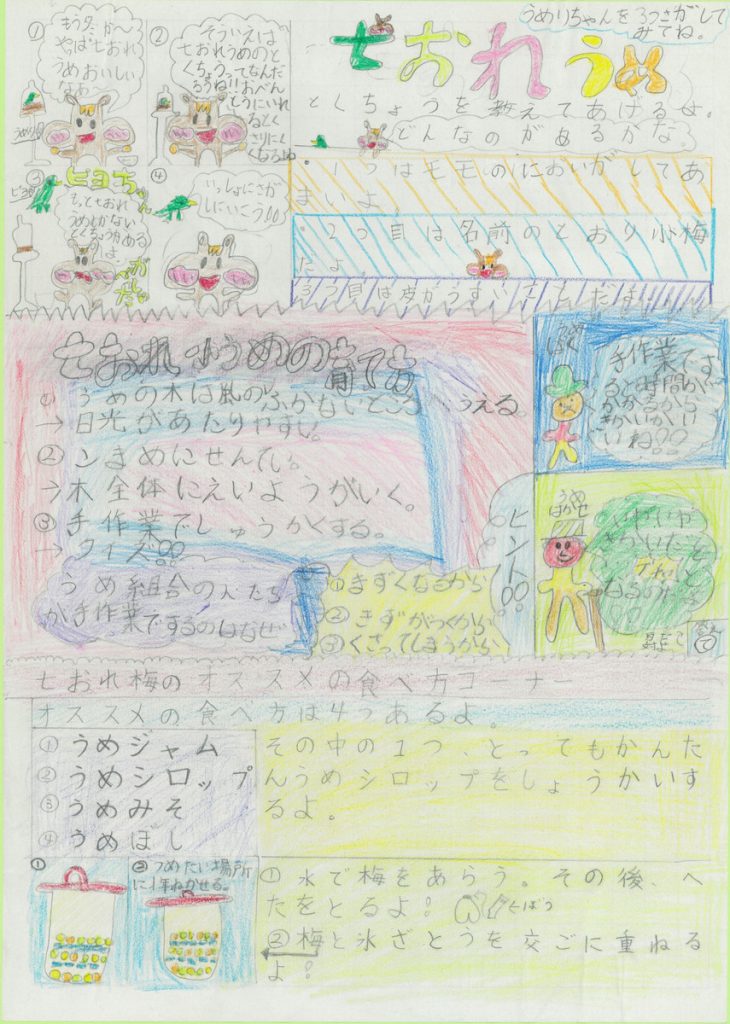 うめりちゃんを3つさがして
みてね。
七おれうめ
とくちょうを教えてあげるよ。
どんなのがあるかな。
①
もう冬か〜
やっぱ七おれ
うめおいしい
なぁ〜
②
そういえば
七おれうめのと
くちょうってなんだ
ろうね!!おべん
とうにいれ
るとく
さりにく
くなるよね
③
ピヨちゃん
もっと七おれ
うめしかない
とくちょうがある
よ
④
いっしょにさが
しにいこう!!
・1つはモモのにおいがしてあ
まいよ
・2つ目は名前のとおり小梅
だよ
・3つ目は皮がうすいことだよ!
七おれ小うめの育て方
① うめの木は風の
→日光があたりやすい。
②こまめにせんてい。
→木全体にえいようがいく。
③手作業でしゅうかくする。
→クイズ!!
うめ組合の人たち
が手作業でするのはなぜ
ヒント!!
①まずくなるから
②きずがつくから
③くさってしまうから
手作業です
ると時間が
かかるから
きかいがい
いね!!
うめ
はかせ
いやいや
きかいだと
なるのだよ
!!
七おれ梅のオススメの食べ方コーナー
オススメの食べ方は4つあるよ。
①うめジャム
②うめシロップ
③うめみそ
④うめぼし
その中の1つ、とってもかんた
んうめシロップをしょうかいす
るよ。
①
②つめたい場所
に1年ねかせる。
①水で梅をあらう。その後、へ
たをとるよ!
②梅と氷ざとうを交ごに重ねる
よ!